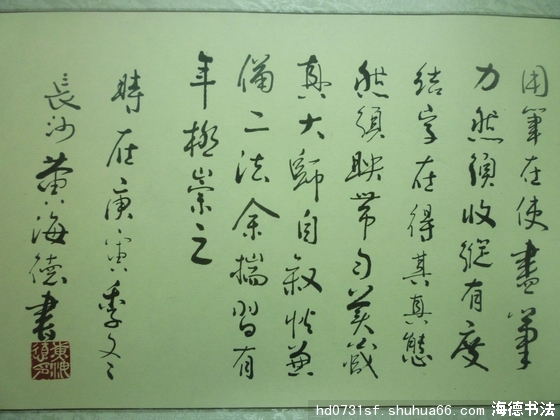 用筆在使盡筆
力然須收縱有度
結字在得其真態
然須映帶勻美藏
真大師自敘帖兼
備二法余揣習有
年極崇之
時在庚寅季冬
長沙黄海德書
海德书法
hd0731sf.shuhua66.com